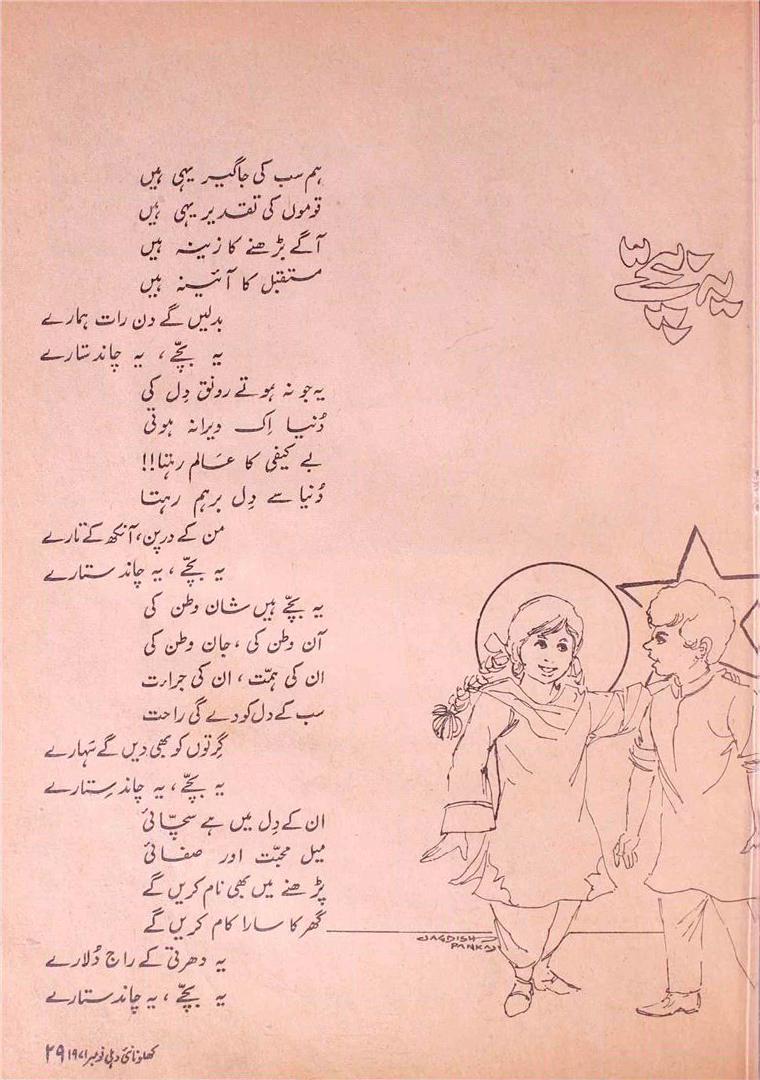 یہ بچّے
ہم سب کی جاگیر یہی ہیں
قوموں کی تقدیر یہی ہیں
آگے بڑھنے کا زینہ ہیں
مستقبل کا آئینہ ہیں
بدلیں گے دن رات ہمارے
یہ بچّے، یہ چاند ستارے
یہ جو نہ ہوتے رونق دِل کی
دُنیا اِک ویرانہ ہوتی
بے کیفی کا عَالم رہتا!!
دُنیا سے دِل برہم رہتا
من کے درپن، آنکھ کے تارے
یہ بچّے، یہ چاند ستارے
یہ بچّے ہیں شان وطن کی
آن وطن کی، جان وطن کی
ان کی ہمّت، ان کی جراءت
سب کے دل کو دے گی راحت
گِرتوں کو بھی دیں گے سَہارے
یہ بچّے، یہ چاند ستارے
ان کے دِل میں ہے سچّائی
میل محبّت اور صفائی
پڑھنے میں بھی نام کریں گے
گھر کا سارا کام کریں گے
یہ دھرتی کے راج دُلارے
یہ بچّے، یہ چاند ستارے
JAGDISH
PANKAJ
کھلونا نئی دہلی نومبر ۱۹۷۱ ۲۹